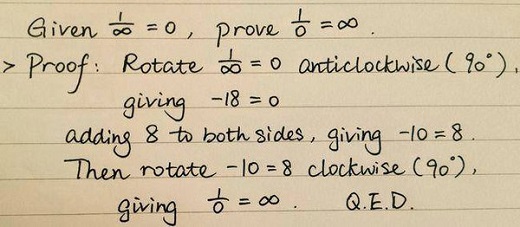 Given 1/∞ = 0, prove 1/0 = ∞.
> Proof: Rotate 1/∞ = 0 anticlockwise (90°),
giving -18 = 0
adding 8 to both sides, giving -10 = 8.
Then rotate -10 = 8 clockwise (90°),
giving 1/0 = ∞. Q.E.D.